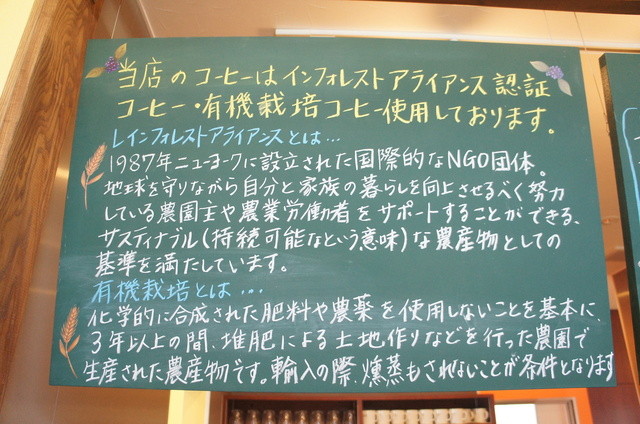 当店のコーヒーはインフォレストアライアンス認証
コーヒー・有機栽培コーヒー使用しております。
レインフォレストアライアンスとは…
1987年ニューヨークに設立された国際的なNGO団体。
地球を守りながら自分と家族の暮らしを向上させるべく努力
している農園主や農業労働者をサポートすることができる、
サスティナブル(持続可能なという意味)な農産物としての
基準を満たしています。
有機栽培とは…
化学的に合成された肥料や農薬を使用しないことを基本に、
3年以上の間、堆肥による土地作りなどを行った農園で
生産された農産物です。輸入の際、燻蒸もされないことが条件となります